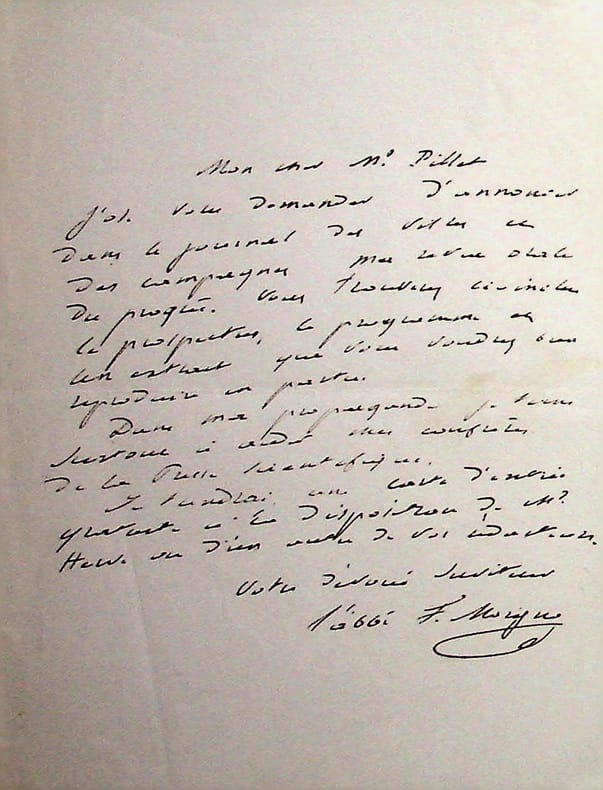 Mon cher Mr. Pillet
J'ose vous demander d'annoncer
dans le journal des villes et
des campagnes ma revue orale
du progrès. Vous trouverez ci-inclus
le prospectus, le programme et
un extrait que vous voudrez bien
reproduire en partie.
Dans ma propagande je tiens
surtout à mes confrères
de la Presse scientifique.
Je tiendrai une carte d'entrée
gratuite à la disposition de Mr.
ou d'un autre de vos rédacteurs.
Votre dévoué serviteur
l'abbé F. Moigno